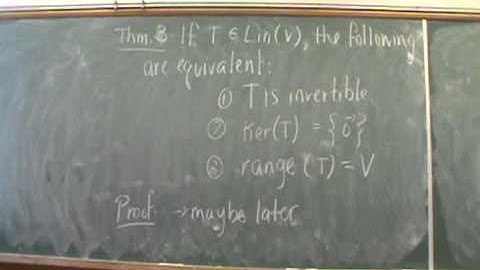 Thm. 3 If T ∈ Lin(V), the following
are equivalent:
① T is invertible.
② Ker(T) = {0⃗}
③ range(T) = V
Proof → maybe later